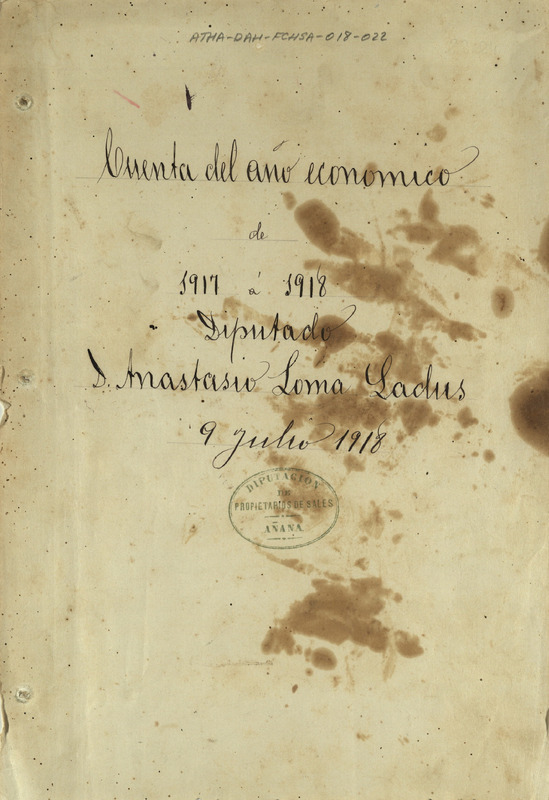 ATHA-DAH-FCHSA-018-022
Cuenta del año economico
de
1917 á 1918
Diputado
D. Anastasio Loma Ladus
9 Julio 1918
DIPUTACION
DE
PROPIETARIOS DE SALES
AÑANA